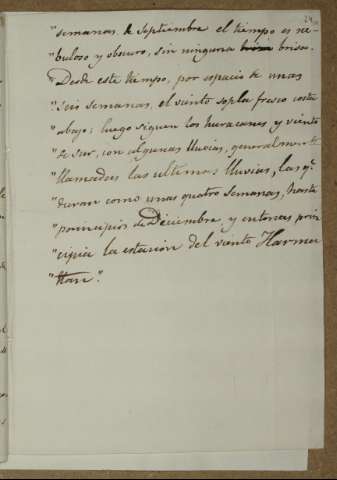 "semanas de Septiembre el tiempo es ne-
"buloso y obscuro, sin ninguna brisa.
"Desde este tiempo, por espacio de unas
"seis semanas, el viento sopla fresco costa
"abajo; luego siguen los huracanes y viento
"de sur, con algunas lluvias, generalmente
"llamadas las ultimas lluvias, las q.e
"duran como unas quatro semanas, hasta
"principios de Diciembre, y entonces prin
"cipia la estacion del viento Harma
"ttan".